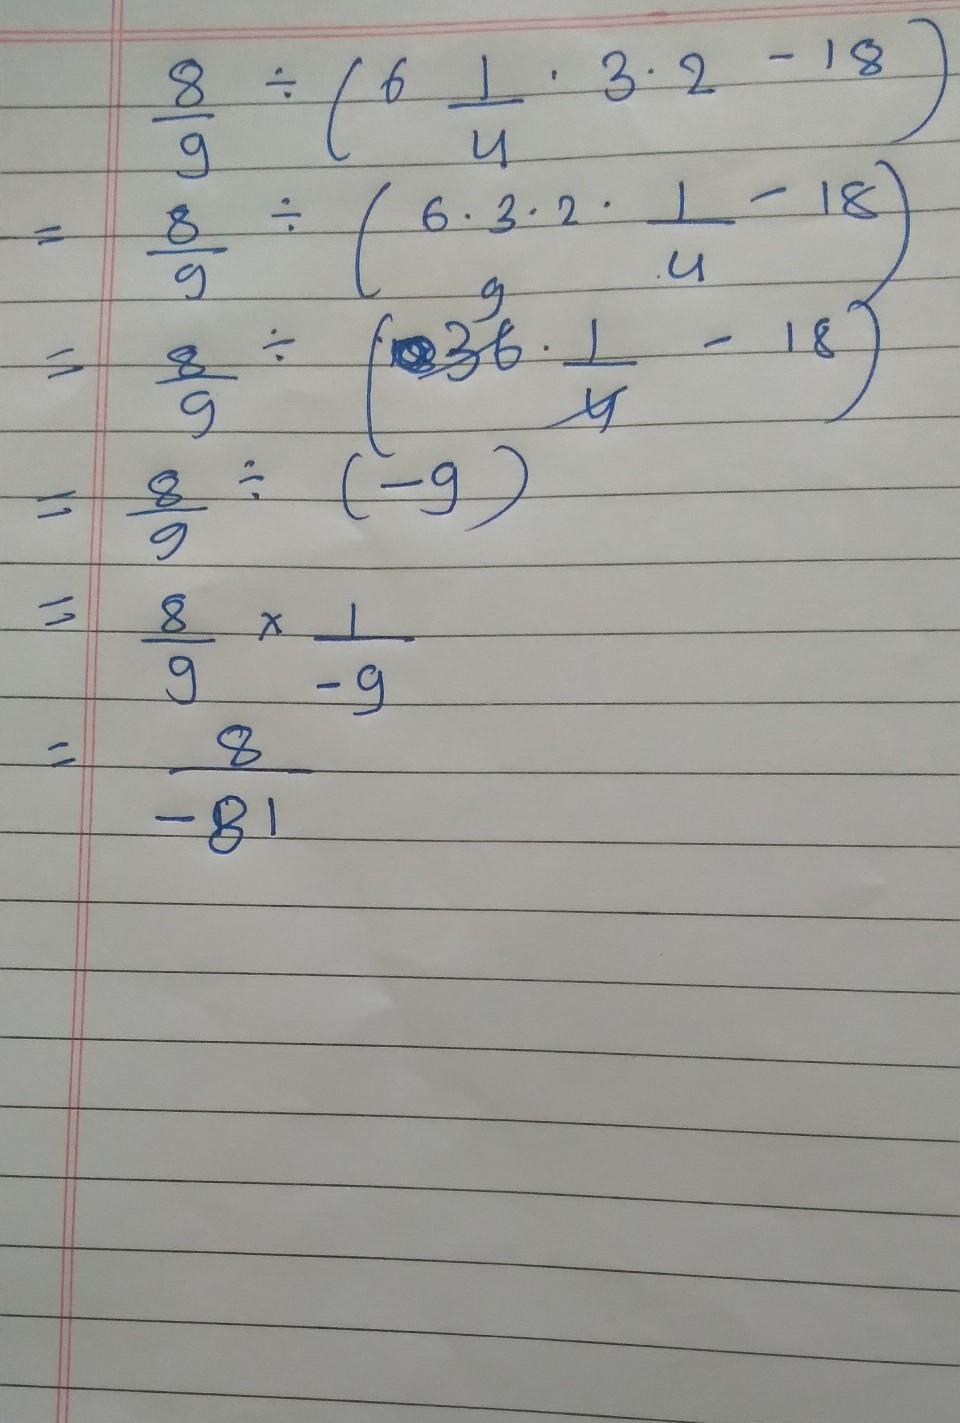 8/9 ÷ (6 1/4 · 3 · 2 - 18)
= 8/9 ÷ (6 · 3 · 2 · 1/4 - 18)
9
= 8/9 ÷ (36 · 1/4 - 18)
= 8/9 ÷ (-9)
= 8/9 × 1/-9
= 8/-81